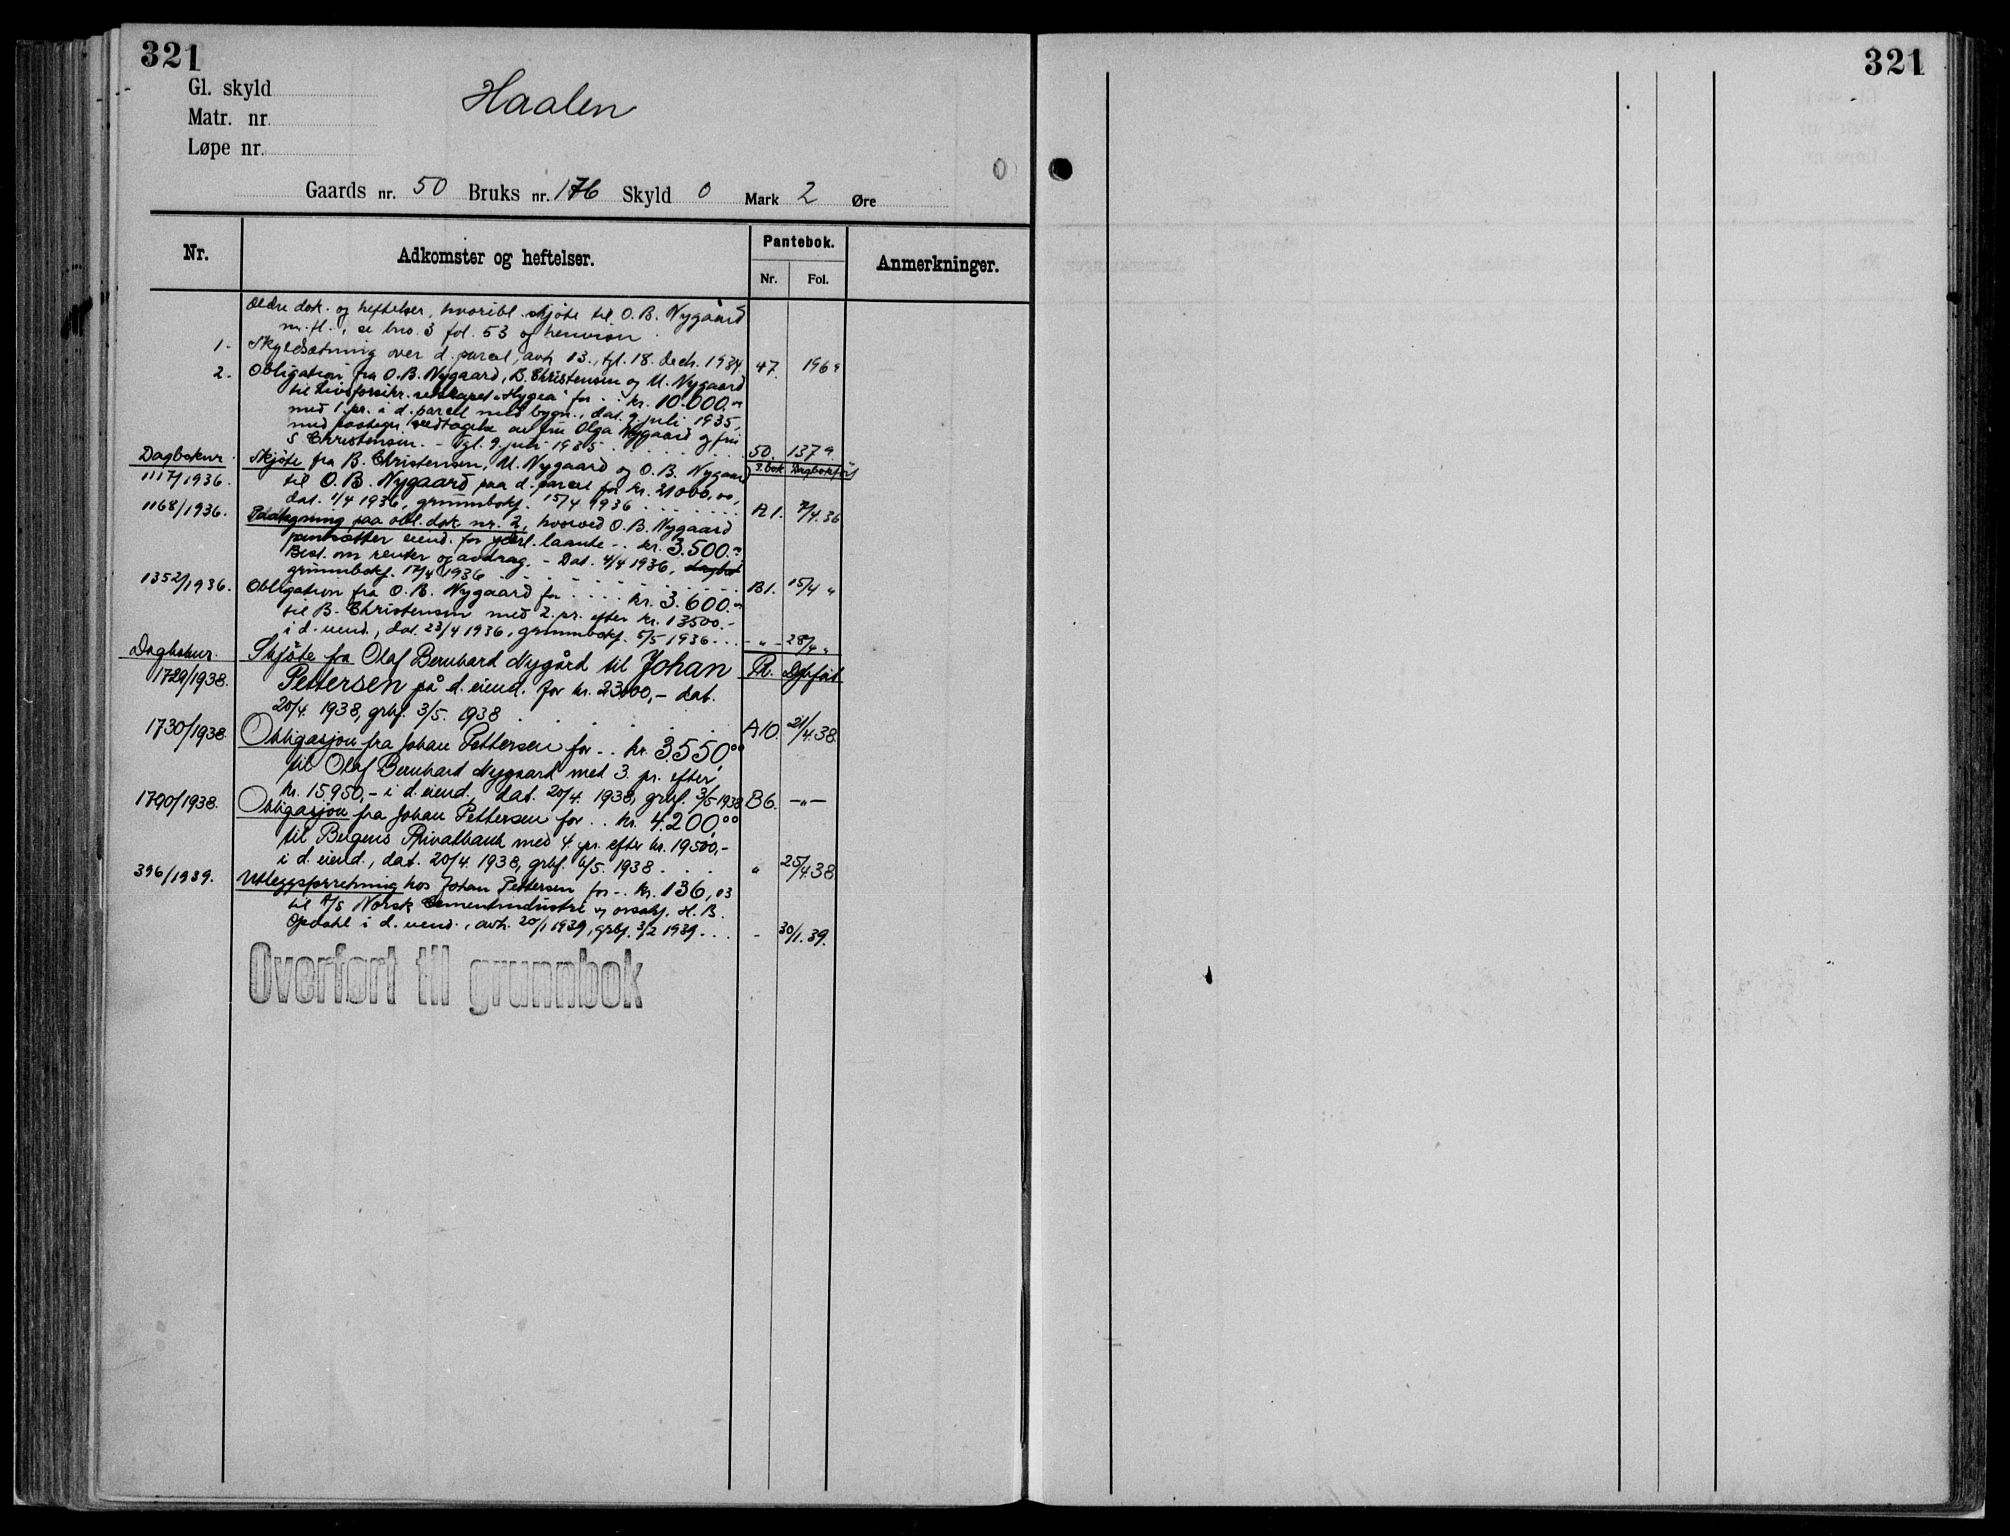 321
321
Gl. skyld
Haalen
Matr. nr.
Løpe nr.
Gaards nr. 50 Bruks nr. 176 Skyld 0 Mark 2 Øre
Nr. Adkomster og heftelser. Pantebok. Anmerkninger.
Nr. Fol.
Ældre dok. og heftelser, hvoribl. skjøte til O. B. Nygaard
m. fl., se bno. 3 fol. 53 og henvisn.
1. Skyldsætning over d. parcel, avh. 13., tgl. 18. decb. 1934. 47. 196
2. Obligation fra O. B. Nygaard, B. Christensen og U. Nygaard
til Livsforsikr. selskapet "Hygea" for .. kr. 10.000.-
med 1. pr. i d. parcel med bygn., dat. 9. juli 1935,
med paategn. vedtagelse av fru Olga Nygaard og fru
S Christensen. - Tgl. 9. juli 1935 50. 137
Dagboknr. Skjøte fra B. Christensen, U. Nygaard og O. B. Nygaard P. bok Dagbokført
1117/1936. til O. B. Nygaard paa d. parcel for kr. 21000,00,
dat. 1/4 1936, grunnbokf. 15/4 1936 A 1. 7/4.36
1168/1936. Paategning paa obl. dok. nr. 2, hvorved O. B. Nygaard
pantsætter eiend. for yderl. laante .. kr. 3.500.-
Best. om renter og avdrag. - Dat. 4/4 1936,
grunnbokf. 17/4 1936 B1. 15/4 "
1352/1936. Obligation fra O. B. Nygaard for .... kr. 3.600.-
til B. Christensen med 2. pr. efter kr. 13500.-
i d. eiend., dat. 23/4 1936, grunnbokf. 5/5 1936 ... - " - 28/4 "
Dagboknr. Skjøte fra Olaf Bernhard Nygård til Johan Pb. Dgbført
1729/1938. Pettersen på d. eiend. for kr. 23000,- dat.
20/4. 1938, grbf. 3/5. 1938 A10. 21/4.38.
1730/1938. Obligasjon fra Johan Pettersen for .. kr. 3550,00
til Olaf Bernhard Nygaard med 3. pr. efter
kr. 15.950,- i d. eiend., dat. 20/4. 1938, grbf. 3/5 1938 B6. -"-
1790/1938. Obligasjon fra Johan Pettersen for .. kr. 4.200,00
til Bergens Privatbank med 4. pr. efter kr. 19500,-
i d. eiend., dat. 20/4. 1938, grbf. 6/5. 1938 .... " 25/4.38.
396/1939. Utleggsforretning hos Johan Pettersen for .. kr. 136,03
til A/S Norsk Cementindustri v/ orsakf. H. B.
Opdahl i d. eiend., avh. 20/1 1939, grbf. 3/2 1939. ... - 30/1.39.
Overført til grunnbok